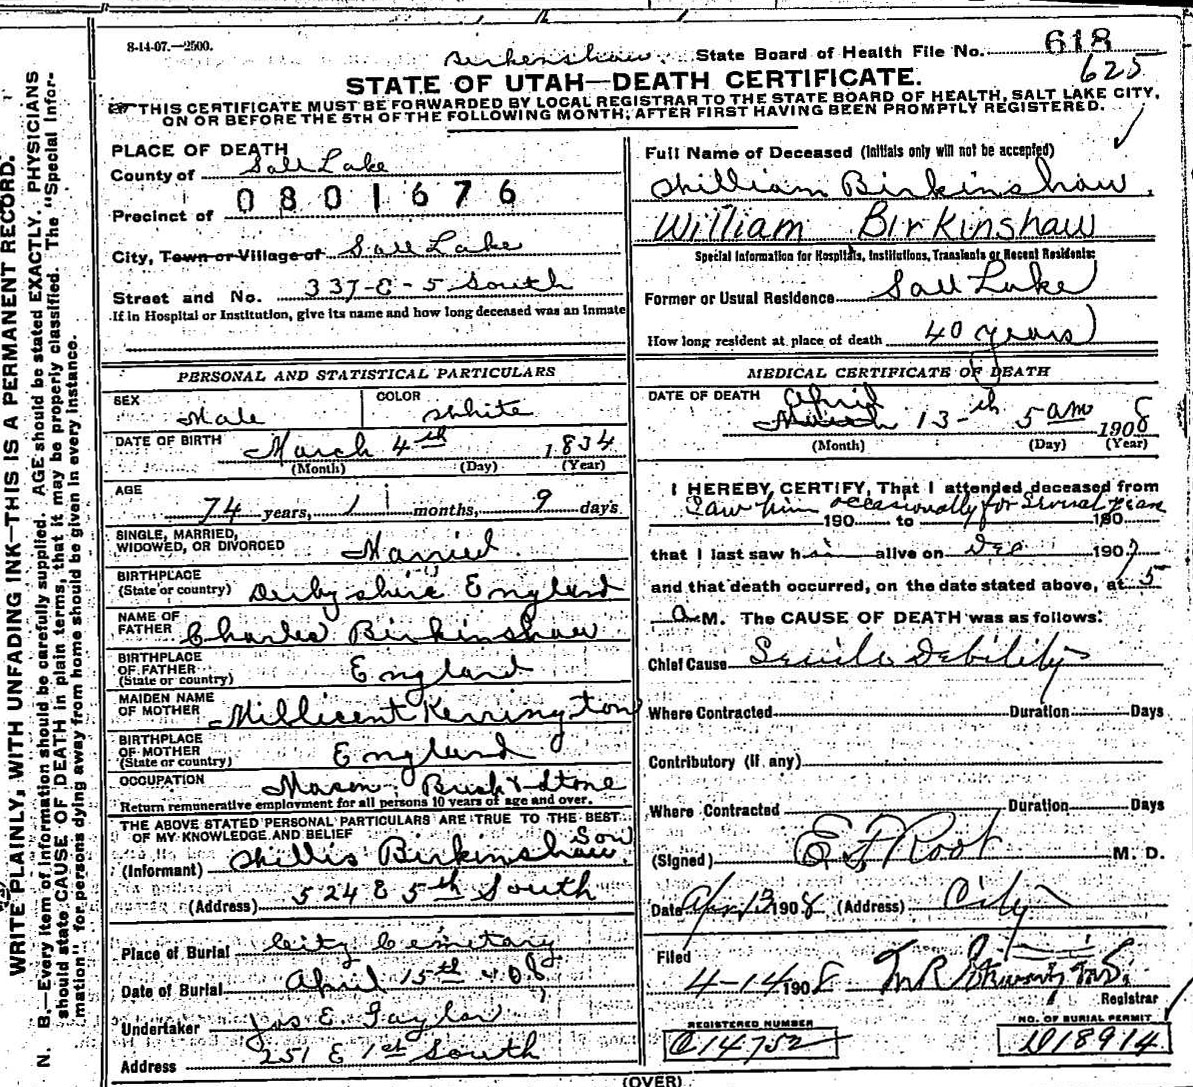 8-14-07.—2500.
Birkenshaw State Board of Health File No. 618
625
STATE OF UTAH—DEATH CERTIFICATE.
THIS CERTIFICATE MUST BE FORWARDED BY LOCAL REGISTRAR TO THE STATE BOARD OF HEALTH, SALT LAKE CITY,
ON OR BEFORE THE 5TH OF THE FOLLOWING MONTH, AFTER FIRST HAVING BEEN PROMPTLY REGISTERED.
PLACE OF DEATH
County of Salt Lake
0801676
Precinct of
City, Town or Village of Salt Lake
Street and No. 337-E-5 South
If in Hospital or Institution, give its name and how long deceased was an inmate
Full Name of Deceased (Initials only will not be accepted)
William Birkinshaw.
William Birkinshaw
Special Information for Hospitals, Institutions, Transients or Recent Residents:
Former or Usual Residence Salt Lake
How long resident at place of death 40 years
PERSONAL AND STATISTICAL PARTICULARS
SEX Male
COLOR White
DATE OF BIRTH March 4th 1834
(Month) (Day) (Year)
AGE
74 years, 1 months, 9 days
SINGLE, MARRIED,
WIDOWED, OR DIVORCED Married
BIRTHPLACE
(State or country) Derbyshire England
NAME OF
FATHER Charles Birkinshaw
BIRTHPLACE
OF FATHER
(State or country) England
MAIDEN NAME
OF MOTHER Millicent Kerrington
BIRTHPLACE
OF MOTHER
(State or country) England
OCCUPATION Mason, Brick & Stone
Return remunerative employment for all persons 10 years of age and over.
THE ABOVE STATED PERSONAL PARTICULARS ARE TRUE TO THE BEST
OF MY KNOWLEDGE AND BELIEF Son
(Informant) Willis Birkinshaw
(Address) 524 E 5th South
Place of Burial City Cemetary
Date of Burial April 15th 1908
Undertaker Jos E. Taylor
Address 251 E 1st South
MEDICAL CERTIFICATE OF DEATH
DATE OF DEATH April
March 13-th 5 am 1908
(Month) (Day) (Year)
I HEREBY CERTIFY, That I attended deceased from
Saw him occasionally for Several years
190 to 190
that I last saw him alive on Dec 1907
and that death occurred, on the date stated above, at 5
A M. The CAUSE OF DEATH was as follows:
Chief Cause Senile Debility
Where Contracted Duration Days
Contributory (if any)
Where Contracted Duration Days
(Signed) E F Root M. D.
Date Apr 13 1908 (Address) City
Filed
4-14 1908
Registrar
REGISTERED NUMBER
C14752
NO. OF BURIAL PERMIT
D18914
(OVER)
WRITE PLAINLY, WITH UNFADING INK—THIS IS A PERMANENT RECORD.
N. B.—Every item of information should be carefully supplied. AGE should be stated EXACTLY. PHYSICIANS
should state CAUSE OF DEATH in plain terms, that it may be properly classified. The "Special Infor-
mation" for persons dying away from home should be given in every instance.